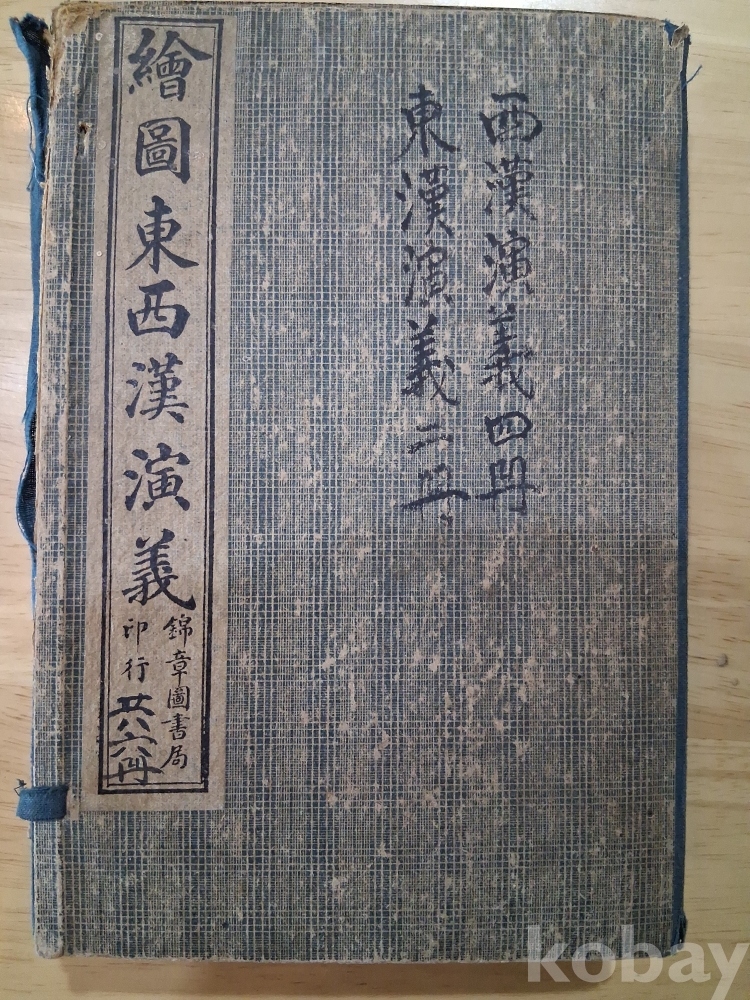 繪圖東西漢演義
錦章圖書局
印行
共六冊
西漢演義四冊
東漢演義二冊
kobay